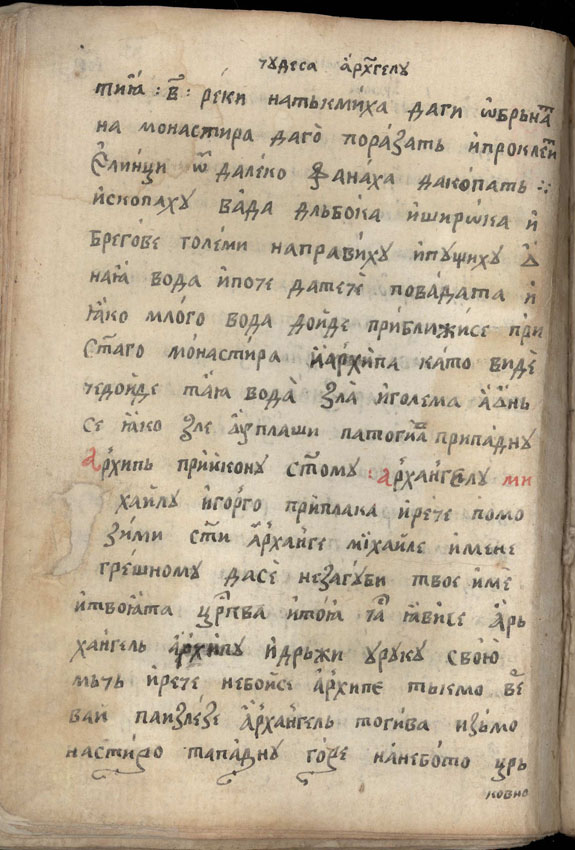 чудеса архгелу
тиꙗ : в҃ : рѣки натъкмиха даги ѡбръна
на монастира даго поразатъ и проклети
Єлинци ѿ далеко фанаха дакопатъ ⁘
ископаху вада дльбока и широка и
брегове големи направиху и пущиху ѡ
наꙗ вода и поче датече повадата и
ꙗко млого вода дойде приближисе при
ст҃аго монастира и архипа като виде
чедойде таꙗ вода зла и голема а
се ꙗко зле ауплаши патогива припадну
архипъ при икону ст҃ому : архангелу ми
хаилу и горго приплака и рече помо
зими ст҃и арханге михаиле и мене
грешному дасе незагуби твое име
и твоꙗта цр҃ква и тоꙗ ча ꙗвисе арь
хангель архипу и дрьжи уруку свою
мьчь и рече небойсе архипе тькмо ве
вай паизлезе архангель тогива изьмо
настиро тападну горе нанебото црь
ковно